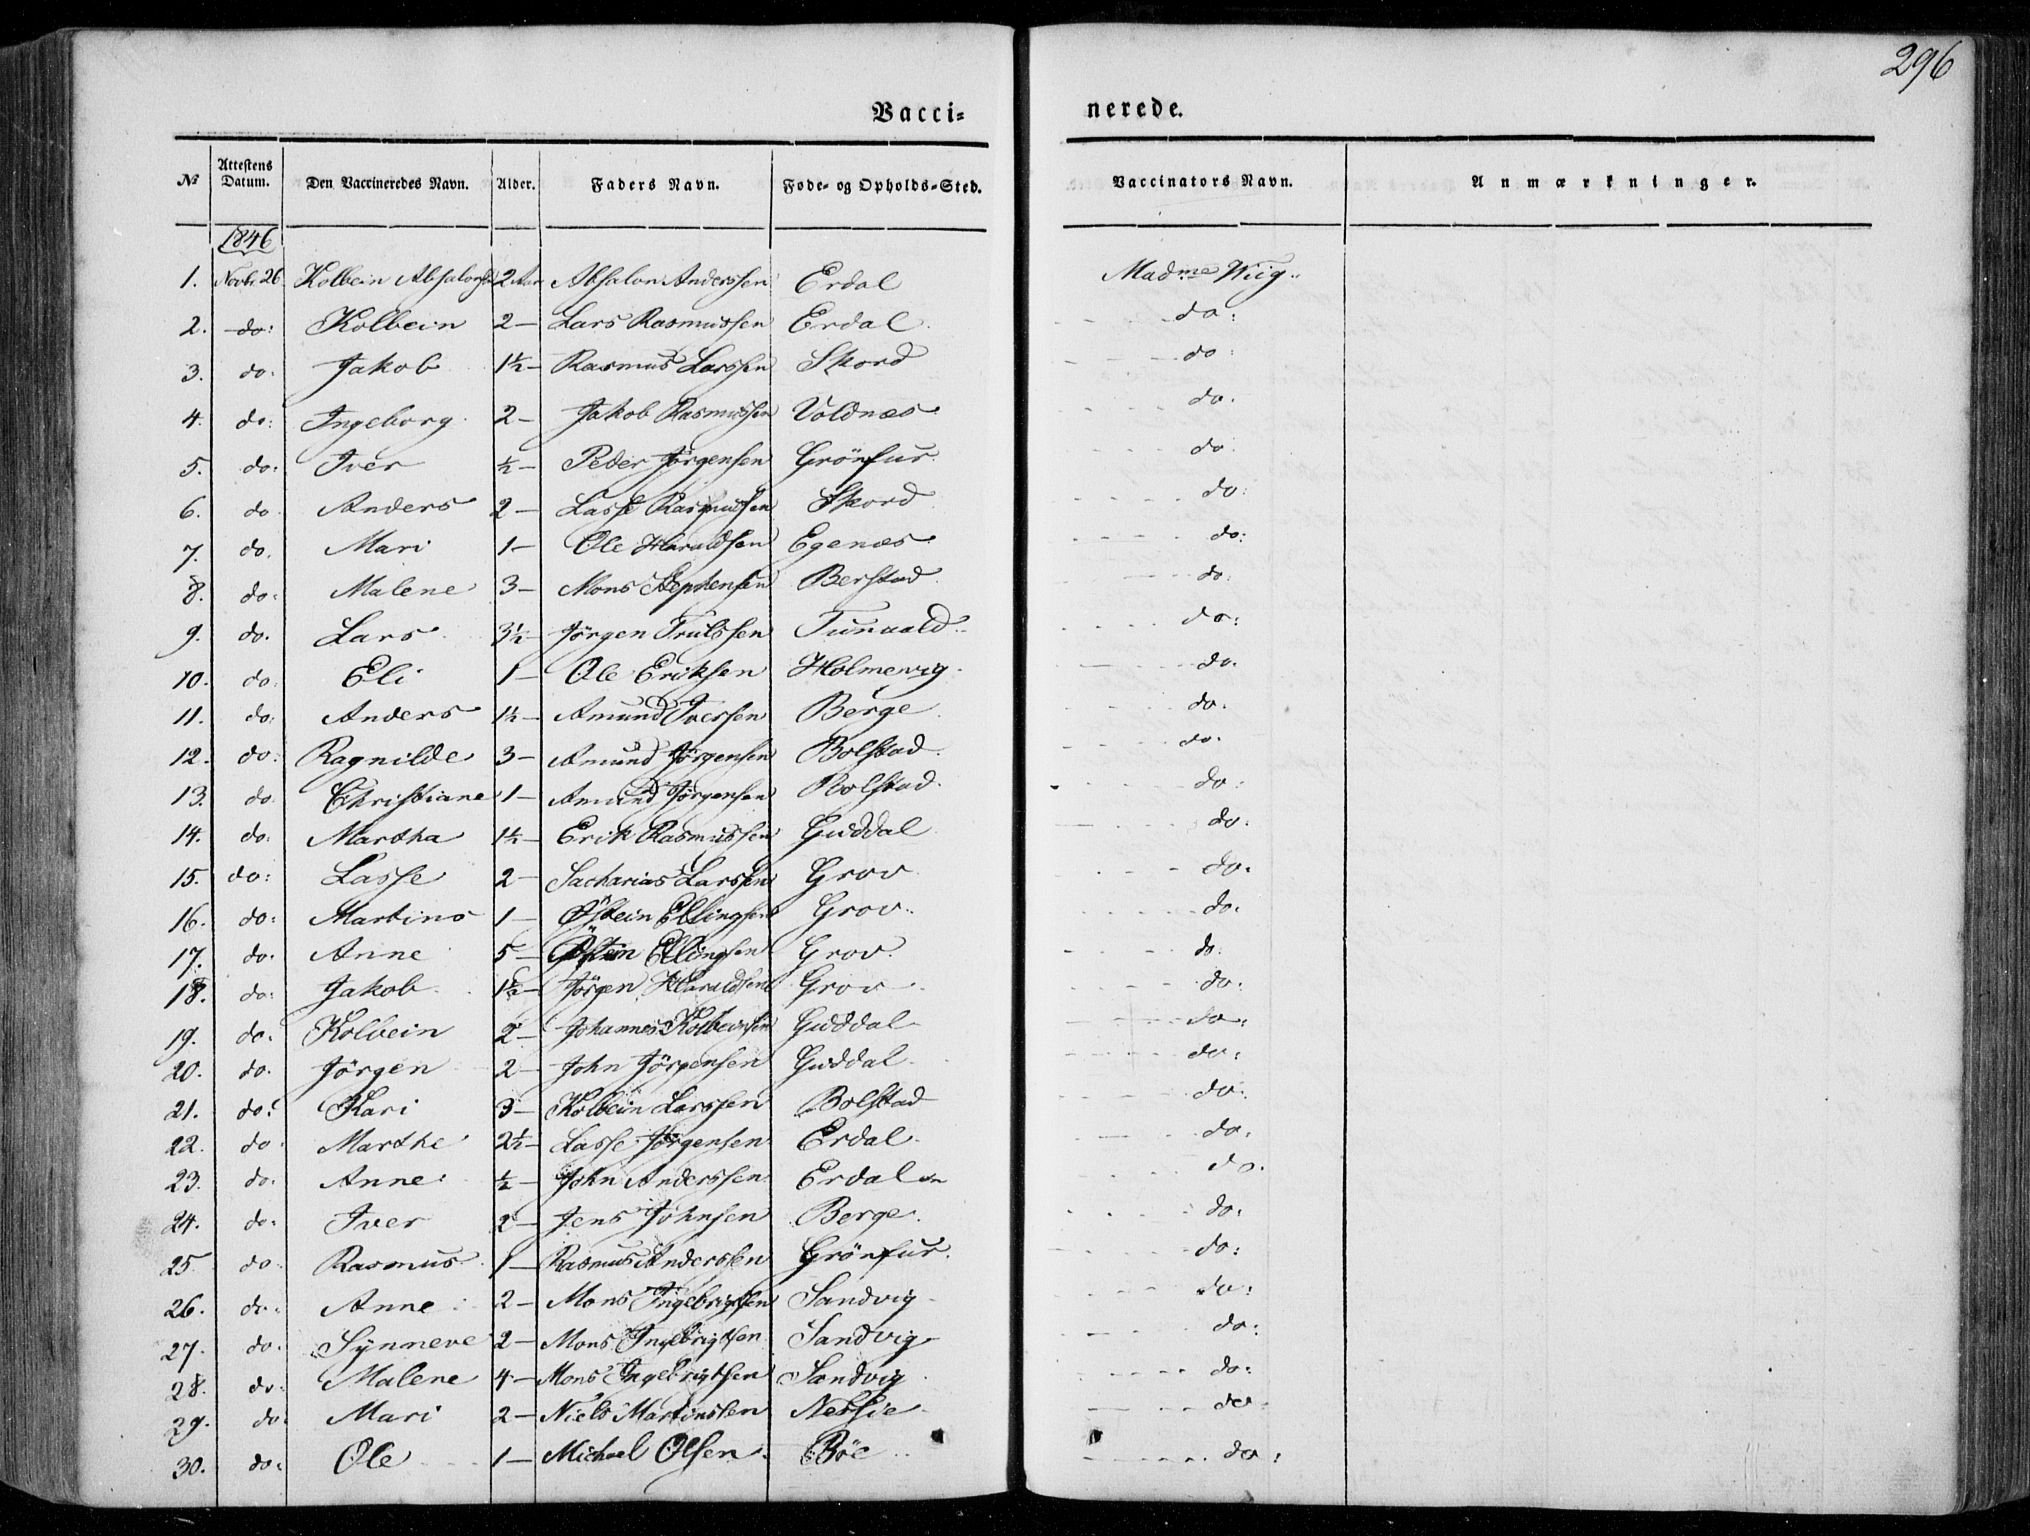 296
Vacci- nerede.
№ Attestens Datum. Den Vaccineredes Navn. Alder. Faders Navn. Føde- og Opholds-Sted. Vaccinators Navn. Anmærkninger.
1846
1. Novbr 26 Kolbein Absalonsen 2 Aar Absalon Anderssen Erdal Madme Wiig..
2. do: Kolbein 2 — Lars Rasmussen Erdal do:
3. do. Jakob 1½ — Rasmus Larssen Skord do:
4. do: Ingeborg 2 — Jakob Rasmussen Voldnæs do.
5. do: Iver ½ — Peder Jörgensen Grönfur do.
6. do Anders 2 — Lasse Rasmussen Skord do:
7. do. Mari 1 — Ole Haraldsen Egenæs do:
8. do: Malene 3 — Mons Stephensen Berstad do:
9. do. Lars 3½ — Jörgen Trulssen do:
10. do: Eli 1 — Ole Eriksen Holmevig do.
11. do: Anders 1½ — Amund Iversen Berge do.
12. do: Ragnilde 3 — Amund Jörgensen Bolstad do.
13. do. Christiane 1 — Amund Jörgensen Bolstad do:
14. do: Martha 1½ — Erik Rasmussen Guddal do:
15. do: Lasse 2 — Sacharias Larssen Grov do.
16. do: Martino 1 — Østein Ellingsen Grov.. do.
17. do. Anne 5 — Østein Ellingsen Grov. do.
18. do: Jakob 1½ — Jörgen Haraldsen Grov do:
19. do: Kolbein 2 — Johannes Kolbeinsen Guddal do:
20. do. Jörgen 2 — John Jörgensen Guddal do:
21. do: Kari 3 — Kolbein Larssen Bolstad do.
22. do Marthe 2½ — Lasse Jörgensen Erdal do.
23. do: Anne ½ — John Anderssen Erdal do.
24. do: Iver 2 — Jens Johnsen Berge do.
25 do Rasmus 1 — Rasmus Anderssen Grönfur. do:
26. do: Anne 2 — Mons Ingebrigtsen Sandvig do:
27. do: Synneve 2 — Mons Ingebrigtsen Sandvig do:
28. do: Malene 4 — Mons Ingebrigtsen Sandvig do:
29. do: Mari 2 — Niels Martinssen do
30. do: Ole 1 — Michael Olsen Böe do: